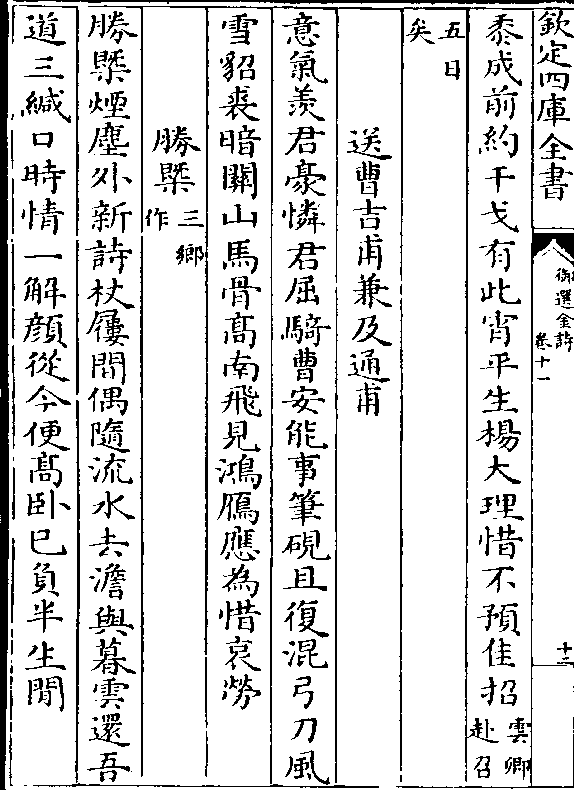 欽定四庫全書
御選金詩
卷十一
十三
黍成前約干戈有此宵平生楊大理惜不預佳招雲卿赴召
五日矣
送曹吉甫兼及通甫
意氣羨君豪憐君屈騎曹安能事筆硯且復混弓刀風
雪貂裘暗關山馬骨髙南飛見鴻鴈應為惜哀勞
勝槩三鄉作
勝槩煙塵外新詩杖屨間偶隨流水去澹與暮雲還吾
道三緘口時情一解顔從今便髙卧已負半生閒